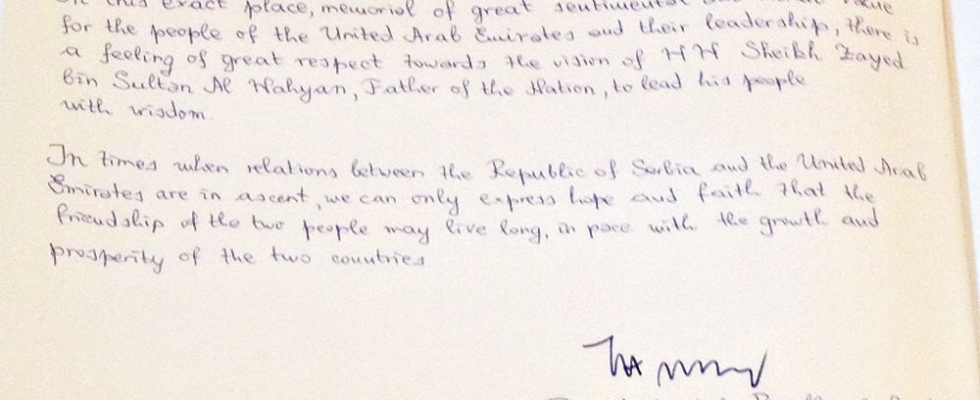 this exact place, memorial of great sentimental
for the people of the United Arab Emirates and their leadership, there is
a feeling of great respect towards the vision of HH Sheikh Zayed
bin Sultan Al Nahyan, Father of the Nation, to lead his people
with wisdom.
In times when relations between the Republic of Serbia and the United Arab
Emirates are in ascent, we can only express hope and faith that the
friendship of the two people may live long, in pace with the growth and
prosperity of the two countries.